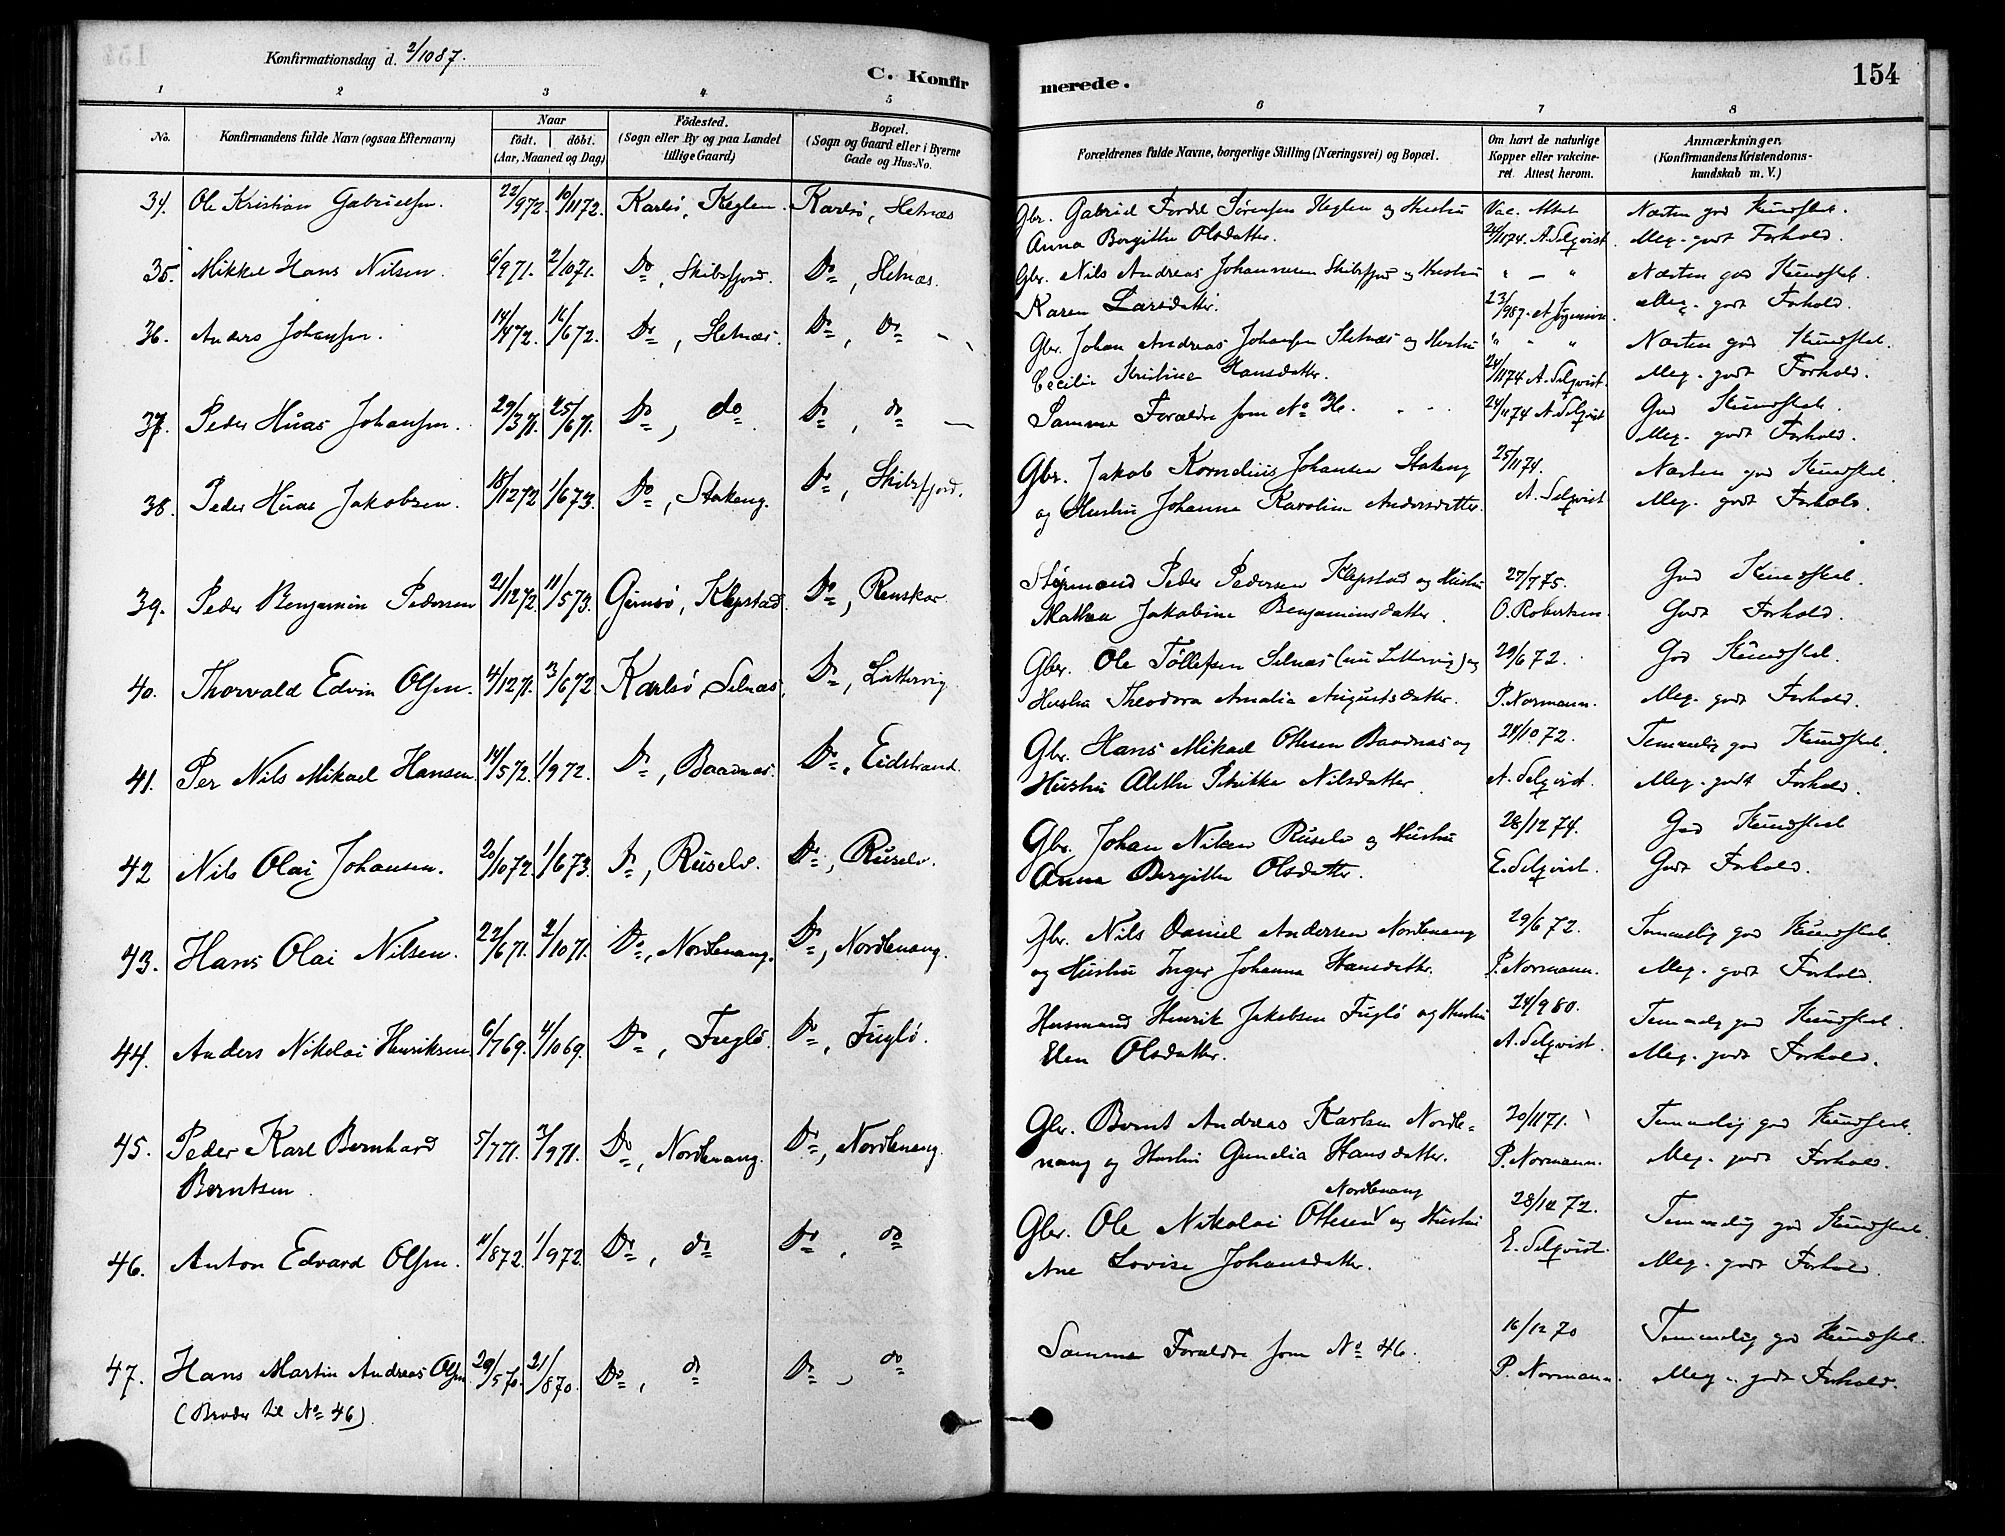 Konfirmationsdag d. 2/10 87.
C. Konfirmerede.
154
1 2 3 4 5 6 7 8
No.
Konfirmandens fulde Navn (ogsaa Efternavn)
Naar
födt. döbt.
(Aar, Maaned og Dag)
Födested.
(Sogn eller By og paa Landet
tillige Gaard)
Bopæl.
(Sogn og Gaard eller i Byerne
Gade og Hus-No.
Forældrenes fulde Navne, borgerlige Stilling (Næringsvei) og Bopæl.
Om havt de naturlige
Kopper eller vakcine-
ret. Attest herom.
Anmærkninger.
(Konfirmandens Kristendoms-
kundskab m. V.)
34. Ole Kristian Gabrielsen. 22/9 72. 10/11 72. Karlsö, Keglen. Karlsö, Sletnæs Gbr. Gabriel Fordel Sörensen Keglen og Hustru Vac. Attest Næsten god Kundskab.
Anna Birgitte Olsdatter. 24/11 74. A. Selqvist. Meg. godt Forhold.
35. Mikkel Hans Nilsen. 6/9 71. 2/10 71. Do, Skibsfjord. Do, Sletnæs. Gbr. Nils Andreas Johannesen Skibsfjord og Hustru " — " Næsten god Kundskab.
Karen Larsdatter. 23/9 87. A. Meg. godt Forhold.
36. Anders Johansen. 14/4 72. 16/6 72. Do, Sletnæs. Do, Do Gbr. Johan Andreas Johansen Sletnæs og Hustru " - " Næsten god Kundskab.
Cecilie Kristine Hansdatter. 24/11 74 A. Selqvist. Meg. godt Forhold.
37. Peder Huas Johansen. 29/3 71. 25/6 71. Do, do. Do, do Samme Forældre som No 36. 24/11 74 A. Selqvist God Kundskab.
Meg. godt Forhold.
38. Peder Huas Jakobsen. 18/12 72 1/6 73. Do, Stakeng. Do, Skibsfjord. Gbr. Jakob Kornelius Johansen Stakeng 25/11 74. Næsten god Kundskab.
og Hustru Johanna Karoline Andersdatter. A. Selqvist Meg. godt Forhold.
39. Peder Benjamin Pedersen 21/12 72. 11/5 73. Gimsö, Klepstad. Do, Renskar. Styrmand Peder Pedersen Klepstad og Hustru 27/7 75. God Kundskab.
Mathea Jakobine Benjaminsdatter. O. Robertsen. Godt Forhold.
40. Thorvald Edvin Olsen. 4/12 71. 3/6 72. Karlsö, Selnæs. Do, Lattervig. Gbr. Ole Töllefsen Selnæs (nu Lattervig) og 29/6 72. God Kundskab.
Hustru Theodora Amalia Augustsdatter. P. Normann. Meg. godt Forhold.
41. Per Nils Mikael Hansen 14/5 72. 1/9 72. Do, Baadnæs. Do, Eidstrand. Gbr. Hans Mikael Ottesen Baadnæs og 24/10 72. Temmelig god Kundskab.
Hustru Alethe Petrikke Nilsdatter. A. Selqvist. Meg. godt Forhold.
42 Nils Olai Johansen. 20/10 72. 1/6 73. Do, Ruselv. Do, Ruselv. Gbr. Johan Nilsen Ruselv og Hustru 28/12 74. God Kundskab
Anna Bergitte Olsdatter. E. Selqvist. Godt Forhold.
43. Hans Olai Nilsen. 22/6 71. 2/10 71. Do, Nordlenang. Do, Nordlenang. Gbr. Nils Daniel Andersen Nordlenang 29/6 72. Temmelig god Kundskab.
og Hustru Inger Johanna Hansdatter. P. Normann. Meg. godt Forhold.
44. Anders Nikolai Henriksen 6/7 69. 4/10 69. Do, Fuglö. Do, Fuglö. Husmand Henrik Jakobsen Fuglö og Hustru 24/9 80. Temmelig god Kundskab.
Elen Olsdatter. A. Selqvist. Meg. godt Forhold.
45. Peder Karl Bernhard 5/7 71. 3/9 71. Do, Nordlenang. Do, Nordlenang. Gbr. Bernt Andreas Karlsen Nordle- 20/11 71. Temmelig god Kundskab.
Berntsen. nang og Hustru Gunelia Hansdatter. P. Normann. Meg. godt Forhold.
46. Anton Edvard Olsen. 11/8 72. 1/9 72. Do, do Do, do Gbr. Ole Nikolai Ottesen Nordlenang og Hustru 28/12 72. Temmelig god Kundskab.
Ane Lovise Johansdatter. E. Selqvist. Meg. godt Forhold.
47. Hans Martin Andreas Olsen 29/5 70. 21/8 70. Do, do Do, do Samme Forældre som No 46. 16/12 70 Temmelig god Kundskab.
(Broder til No 46). P. Normann. Meg. godt Forhold.